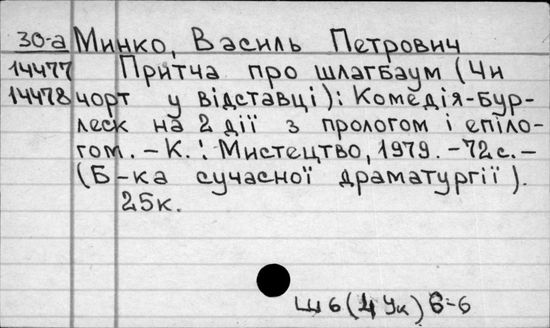 30-а Минко, Василь Петрович
14477 Притча про шлагбаум (Чи
14478 чорт у відставці): Комедія-бур-
леск на 2 дії з прологом і епіло-
гом. - К.: Мистецтво, 1979. - 72 с. -
(Б-ка сучасної драматургії).
25к.
Ш6(4Ук)6-6